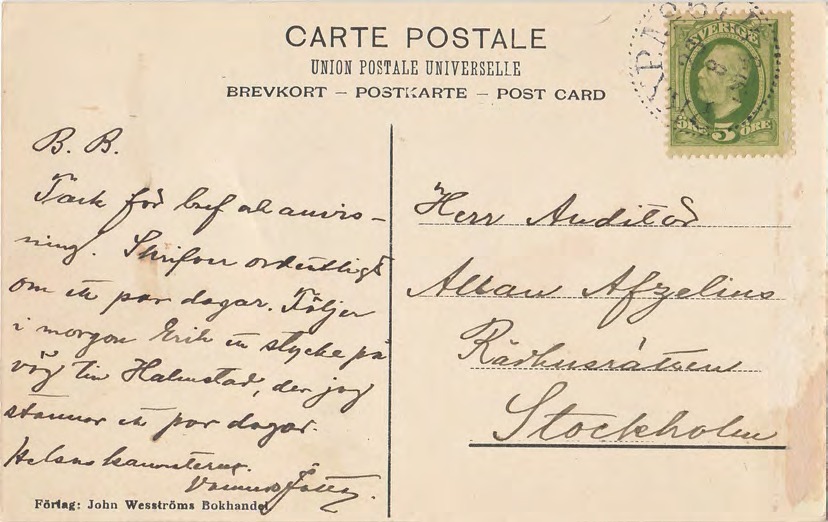 CARTE POSTALE
UNION POSTALE UNIVERSELLE
BREVKORT – POSTKARTE – POST CARD
SVERIGE
ÖRE 5 ÖRE
B. B.
Tack för bref och anvis-
ning! Skrifver ordentligt
om ett par dagar. Följer
i morgon Erik en stycke på
väg till Halmstad, der jag
stannar ett par dagar.
Helsa kamraterna.
Herr Auditör
Alban Afzelius
Rådhusrätten
Stockholm
Förlag: John Wesströms Bokhandel